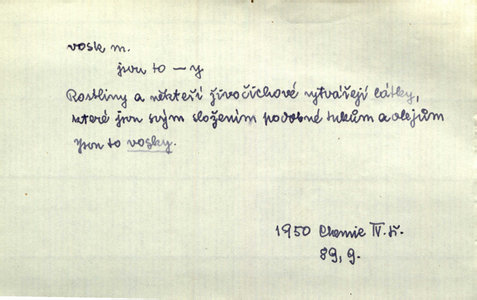 vosk m.
jsou to — y.
Rostliny a někteří živočichové vytvářejí látky,
které jsou svým složením podobné tukům a olejům
Jsou to vosky.
1950 Chemie IV. tř.
89, 9.